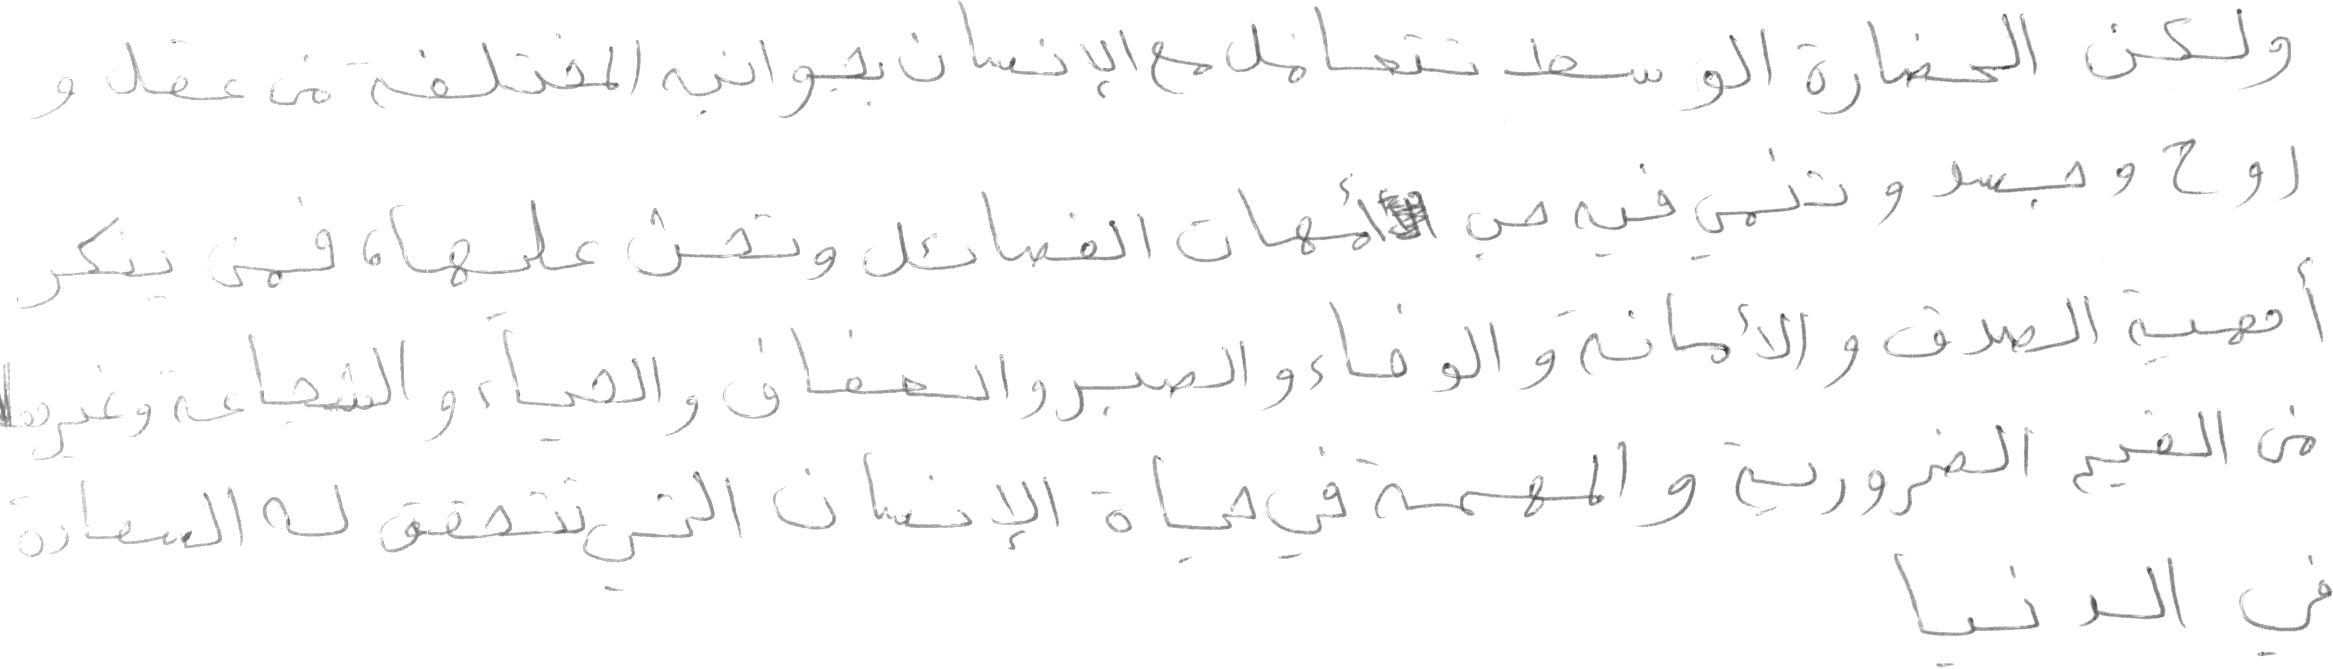 ولكن الحضارة الوسط تتعامل مع الإنسان بجوانبه المختلفة من عقل و
روح و جسد و تنمي فيه حب أمهات الفضائل وتحث عليها، فمن ينكر
أهمية الصدق و الأمانة و الوفاء و الصبر و العفاف و الحياء و الشجاعة وغيرها
من القيم الضرورية و المهمة في حياة الإنسان التي تتحقق له السعادة
في الدنيا